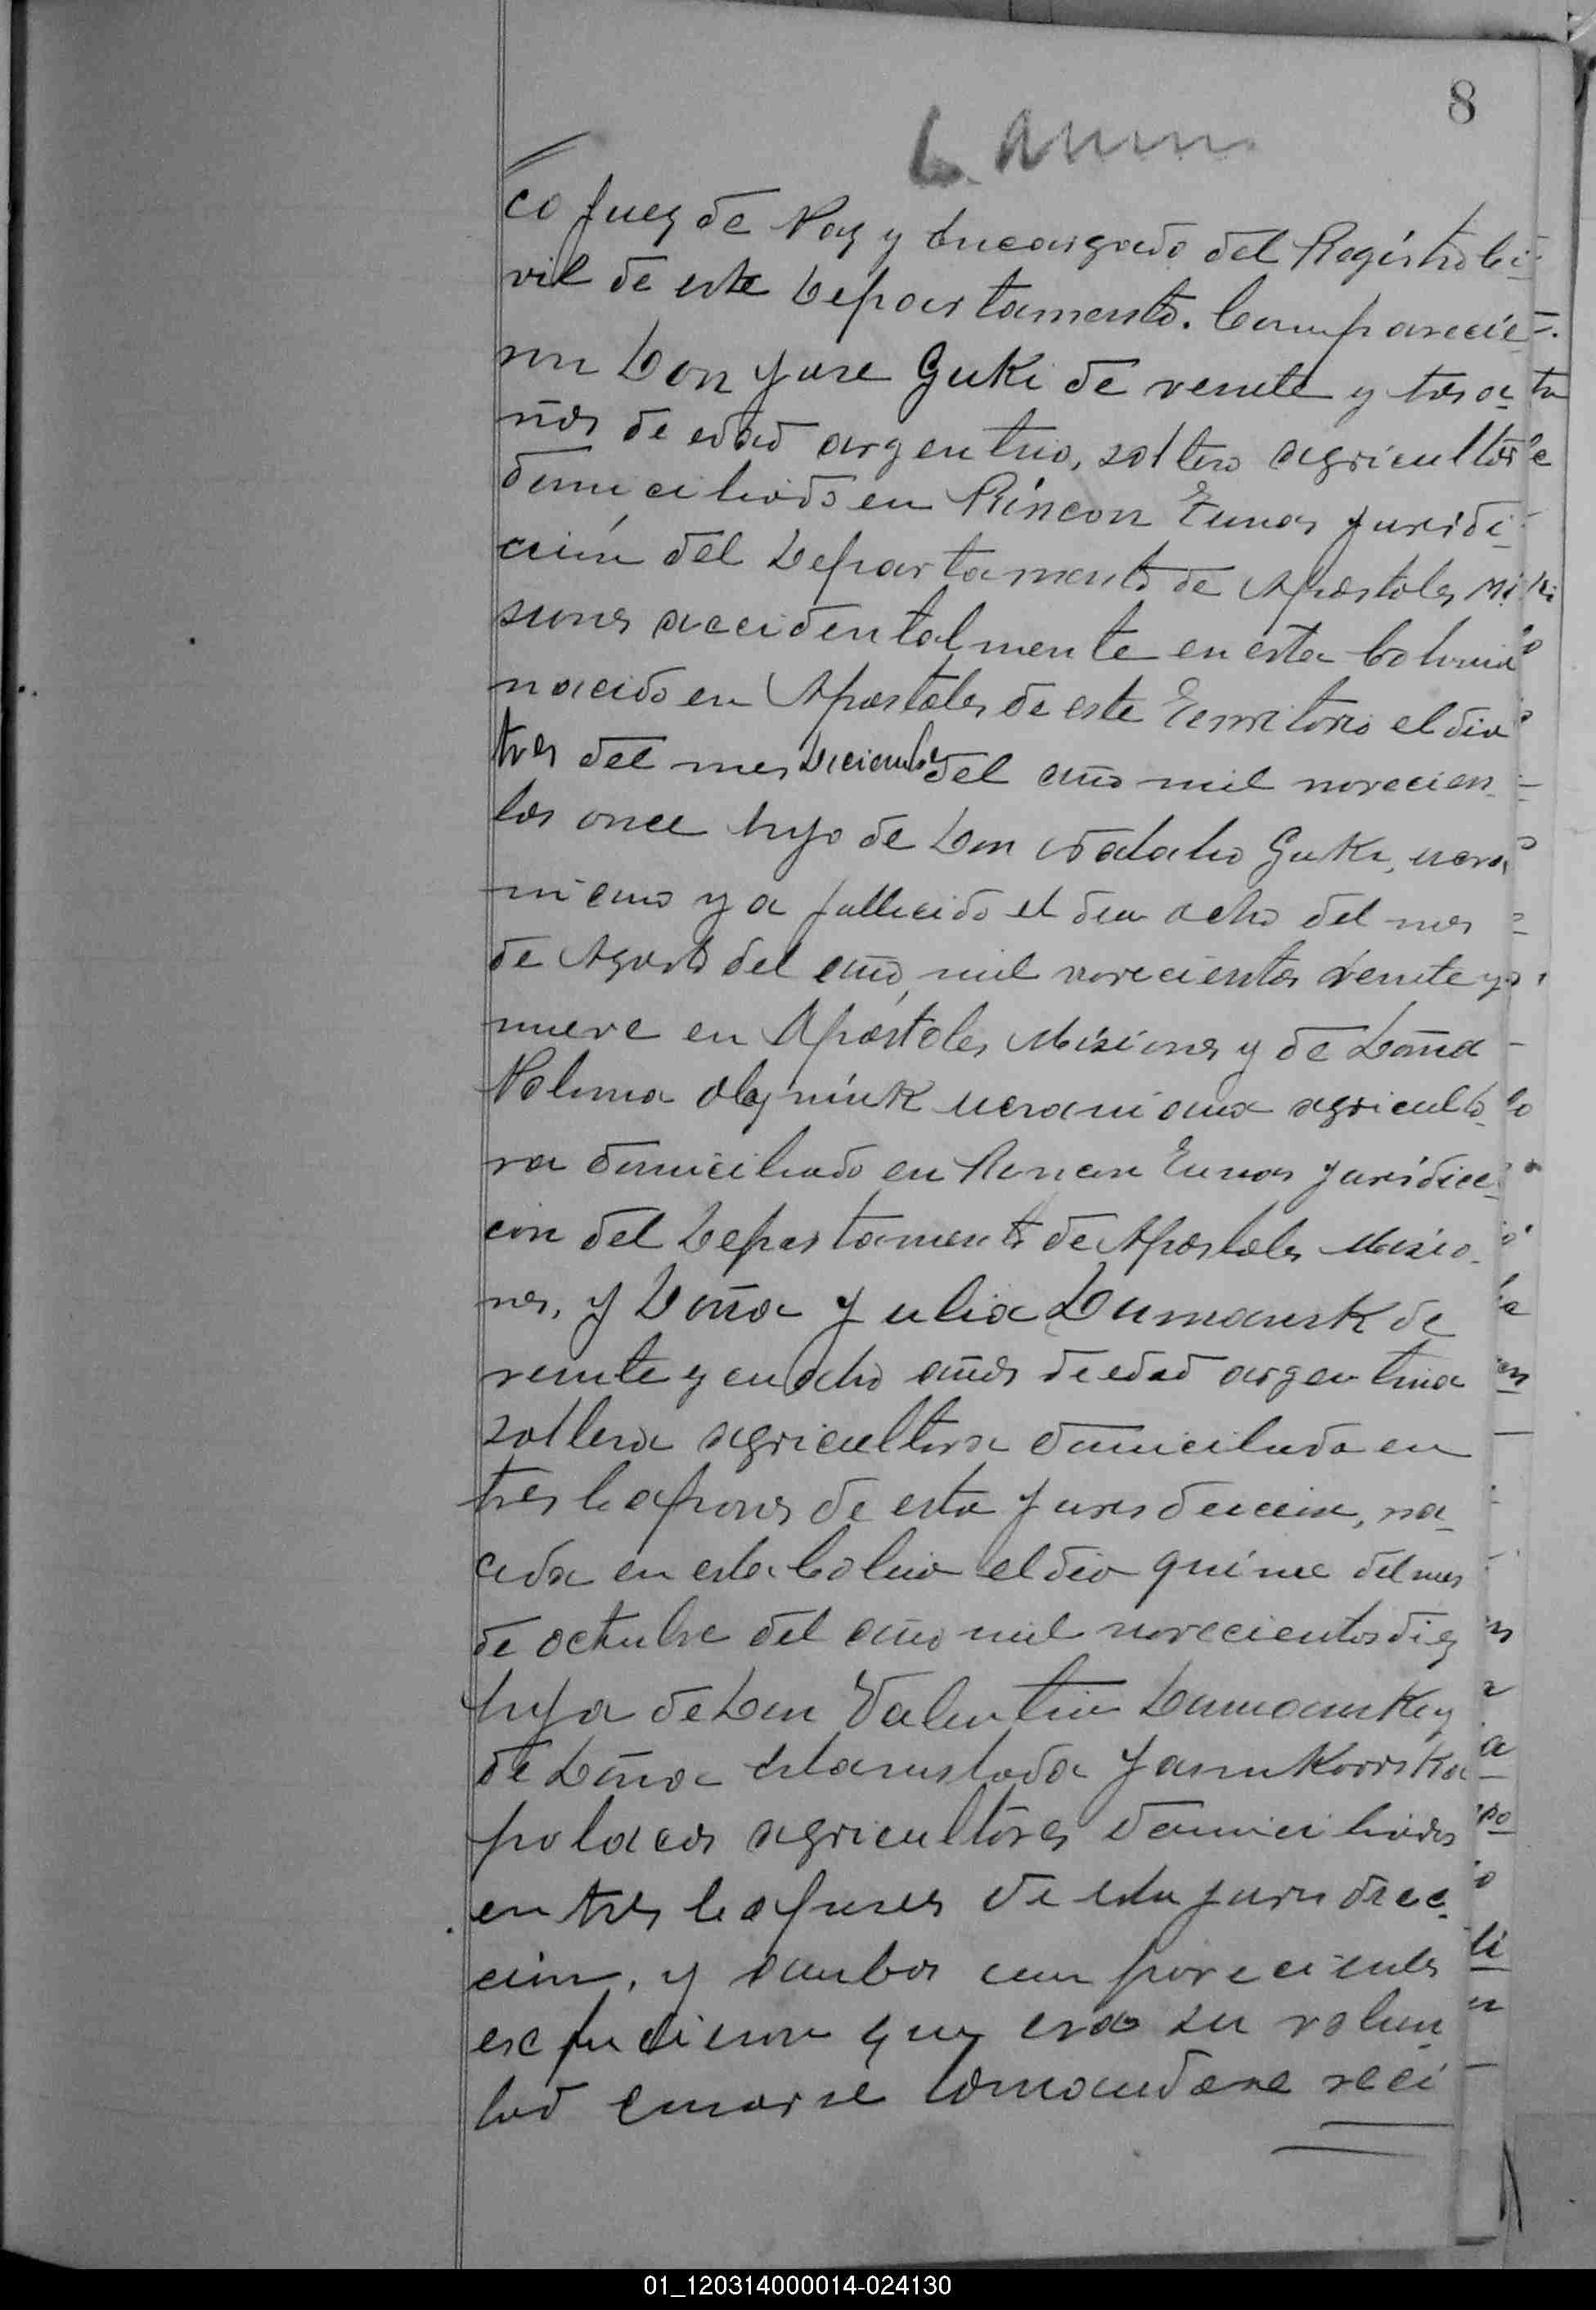 8
co Juez de Paz y Encargado del Registro Ci-
vil de este Departamento. Comparecie-
ron Don Jose Guki de veinte y tres a-
ños de edad argentino, soltero agricultor
domiciliado en Rincon Tunas Juridi-
ción del Departamento de Apostoles Mi-
siones accidentalmente en esta Colonia
nacido en Apostoles de este Territorio el dia
tres del mes Diciembre del año mil novecien-
tos once hijo de Don Guki, ucra-
niano ya fallecido el dia ocho del mes
de Agosto del año mil novecientos veinte y
nueve en Apóstoles Misiones y de Doña
Polima Olyniuk ucraniana agriculto-
ra domiciliado en Rincon Tunas Juridic-
cion del Departamento de Apostoles Misio-
nes, y Doña Julia Dumansk de
veinte y ocho años de edad argentina
soltera agricultora domiciliada en
tres Capones de esta Jurisdiccion, na-
cida en esta Colonia el dia quince del mes
de octubre del año mil novecientos diez
hija de Don Valentin Dumanski y
de Doña Janukovska
polacos agricultores domiciliados
en tres Capones de esta jurisdic-
cion, y ambos comparecientes
expusieron que era su volun
tad
01_120314000014-024130